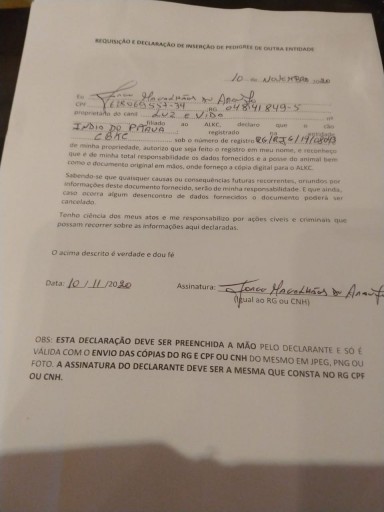 REQUISIÇÃO E DECLARAÇÃO DE INSERÇÃO DE PEDIGREES DE OUTRA ENTIDADE
10 DE NOVEMBRO 2020
Eu, Jorge Magalhães de
CPF RG 04841849-5
proprietário do canil LUZ e VIDA nº
filiado ao ALKC, declaro que o cão
INDIO DO registrado na entidade
CBKC sob o número de registro
de minha propriedade, autorizo que seja feito o registro em meu nome, e reconheço
que é de minha total responsabilidade os dados fornecidos e a posse do animal bem
como o documento original em mãos, onde forneço a cópia digital para o ALKC.
Sabendo-se que quaisquer causas ou consequências futuras recorrentes, oriundos por
informações deste documento fornecido, serão de minha responsabilidade. E que ainda,
caso ocorra algum desencontro de dados fornecidos o documento poderá ser
cancelado.
Tenho ciência dos meus atos e me responsabilizo por ações cíveis e criminais que
possam recorrer sobre as informações aqui declaradas.
O acima descrito é verdade e dou fé
Data: 10 / 11 /2020 Assinatura: Jorge Magalhães de
(Igual ao RG ou CNH)
OBS: ESTA DECLARAÇÃO DEVE SER PREENCHIDA A MÃO PELO DECLARANTE E SÓ É
VÁLIDA COM O ENVIO DAS CÓPIAS DO RG E CPF OU CNH DO MESMO EM JPEG, PNG OU
FOTO. A ASSINATURA DO DECLARANTE DEVE SER A MESMA QUE CONSTA NO RG CPF
OU CNH.